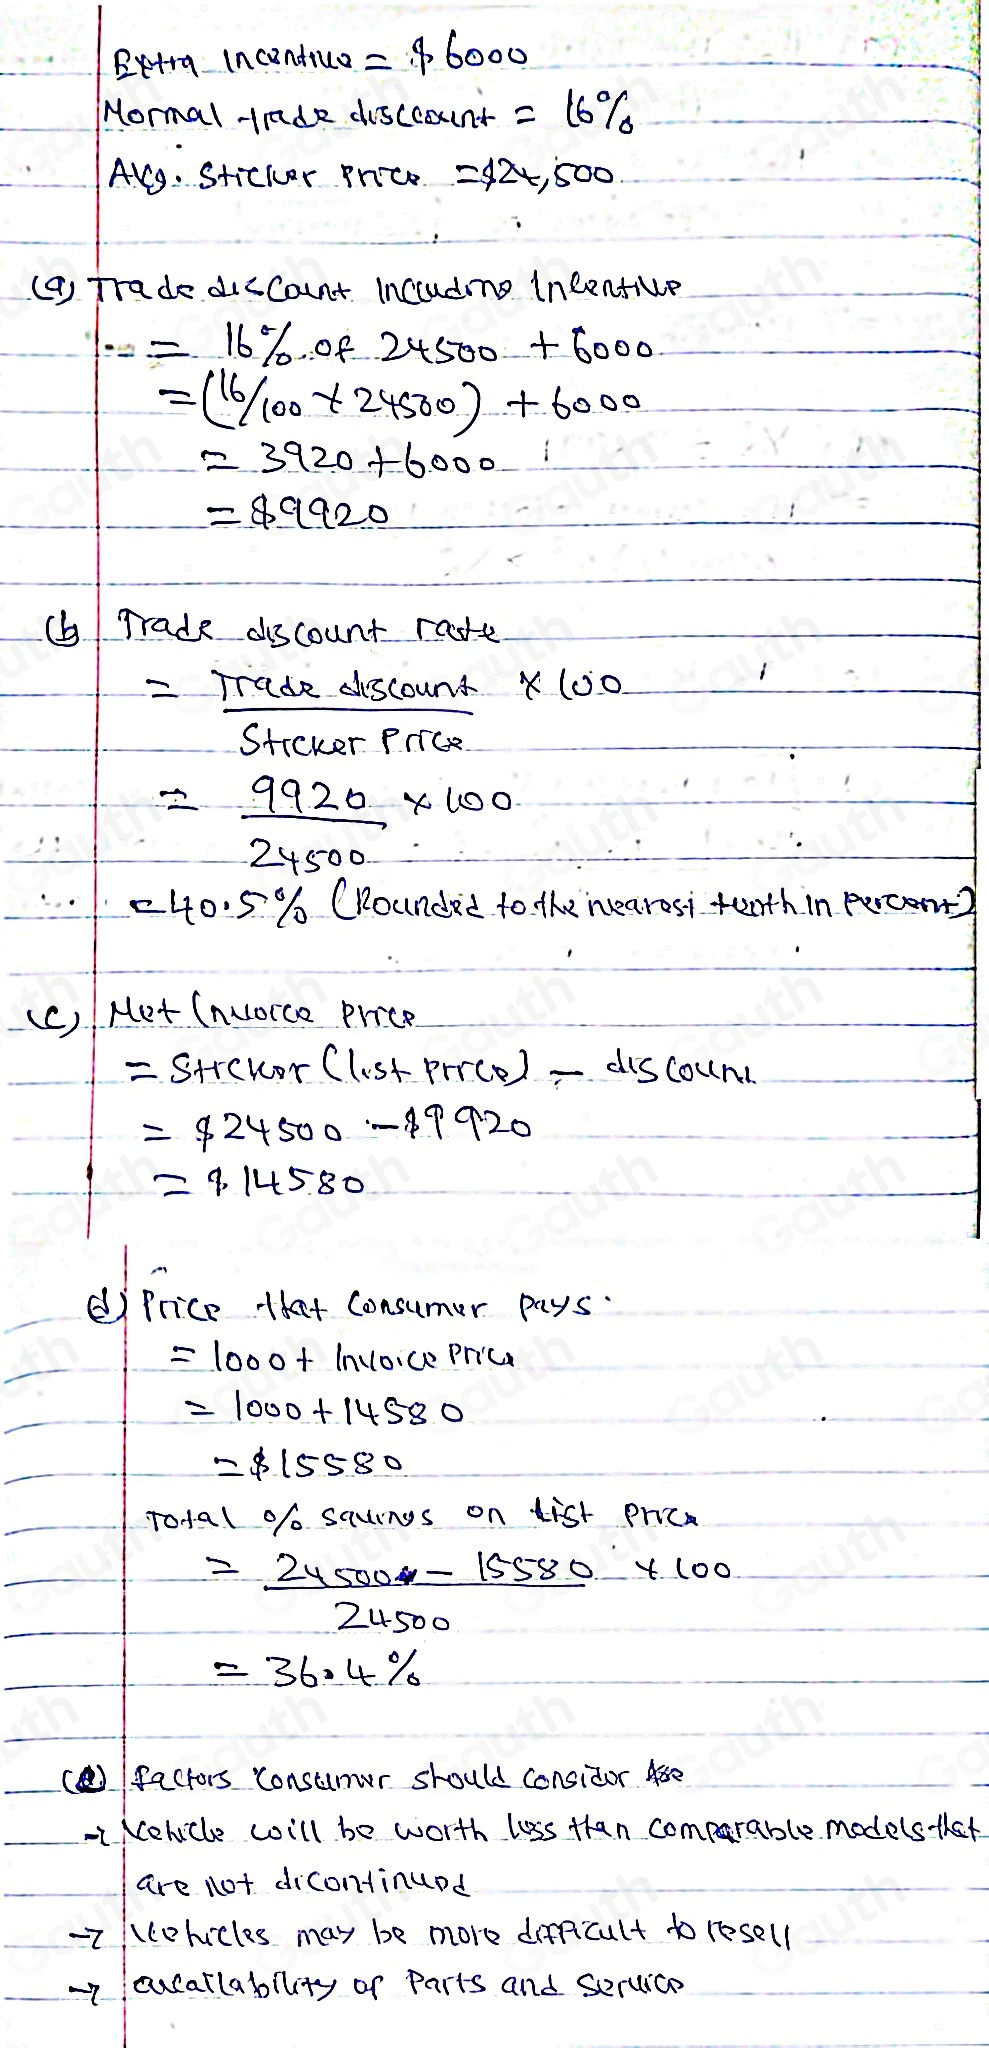 Extra Incentive = $6000
Normal trade disccount = 16%
Avg. Sticker Price = $24,500
(a) Trade discount Including Incentive
= 16% of 24500 + 6000
= (16/100 × 24500) + 6000
= 3920 + 6000
= $9920
(b Trade discount rate
= Trade discount × 100
Sticker Price
= 9920 × 100
24500
= 40.5% (Rounded to the nearest tenth in percent)
(c) Net Invoice price
= Sticker (list price) - discount
= $24500 - $9920
= $14580
d) Price that consumer pays.
= 1000 + Invoice price
= 1000 + 14580
= $15580
Total % savings on list price
= 24500 - 15580 × 100
24500
= 36.4%
(e) factors consumer should consider are
→ Vehicle will be worth less than comparable models that
are not dicontinued
→ Vehicles may be more difficult to resell
→ availability of parts and service